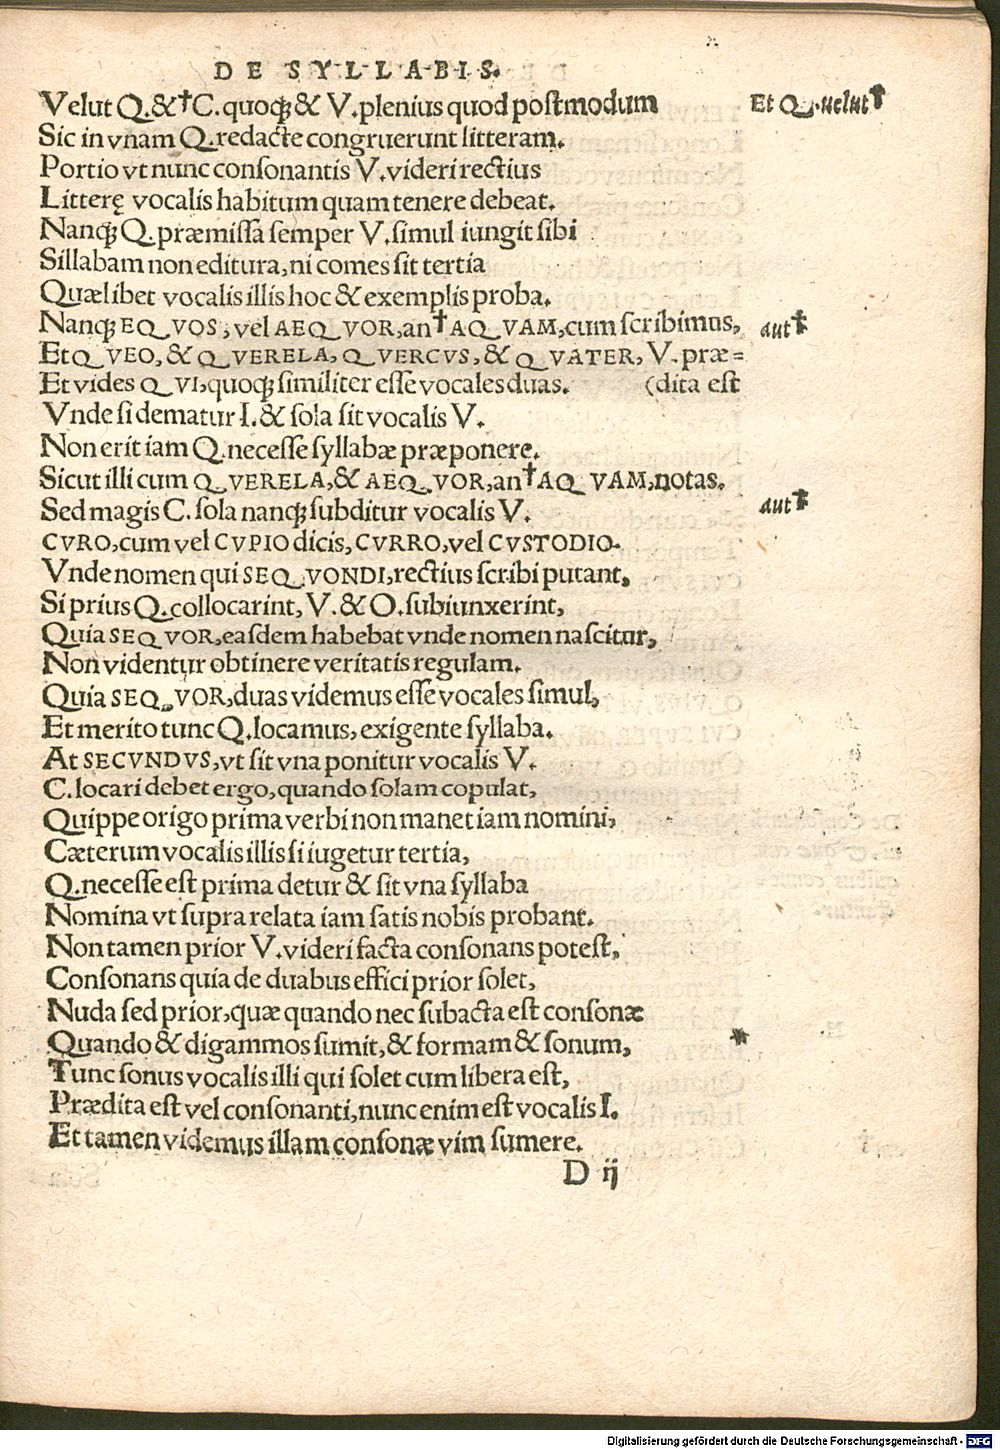 DE SYLLABIS.
Velut Q.&†C.quoqꝫ & V.plenius quod postmodum
Et Q.uelut†
Sic in vnam Q.redacte congruerunt litteram.
Portio vt nunc consonantis V.videri rectius
Litterę vocalis habitum quam tenere debeat.
Nanqꝫ Q.præmissa semper V.simul iungit sibi
Sillabam non editura,ni comes sit tertia
Quælibet vocalis illis hoc & exemplis proba.
Nanqꝫ EQVOS,vel AEQVOR,an†AQVAM,cum scribimus,
aut†
Et QVEO,& QVERELA,QVERCVS,& QVATER,V.præ=
Et vides QVI,quoqꝫ similiter esse vocales duas. (dita est
Vnde si dematur I.& sola sit vocalis V.
Non erit iam Q.necesse syllabæ præponere.
Sicut illi cum QVERELA,& AEQVOR,an†AQVAM,notas.
Sed magis C.sola nanqꝫ subditur vocalis V.
aut†
CVRO,cum vel CVPIO dicis,CVRRO,vel CVSTODIO.
Vnde nomen qui SEQVONDI,rectius scribi putant,
Si prius Q.collocarint,V.& O.subiunxerint,
Quia SEQVOR,easdem habebat vnde nomen nascitur,
Non videntur obtinere veritatis regulam.
Quia SEQVOR,duas videmus esse vocales simul,
Et merito tunc Q.locamus,exigente syllaba.
At SECVNDVS,vt sit vna ponitur vocalis V.
C.locari debet ergo,quando solam copulat,
Quippe origo prima verbi non manet iam nomini,
Cæterum vocalis illis si iugetur tertia,
Q.necesse est prima detur & sit vna syllaba
Nomina vt supra relata iam satis nobis probant.
Non tamen prior V.videri facta consonans potest,
Consonans quia de duabus effici prior solet,
Nuda sed prior,quæ quando nec subacta est consonæ
Quando & digammos sumit,& formam & sonum,
*
Tunc sonus vocalis illi qui solet cum libera est,
Prædita est vel consonanti,nunc enim est vocalis I.
Et tamen videmus illam consonæ vim sumere.
D ij
Digitalisierung gefördert durch die Deutsche Forschungsgemeinschaft - DFG